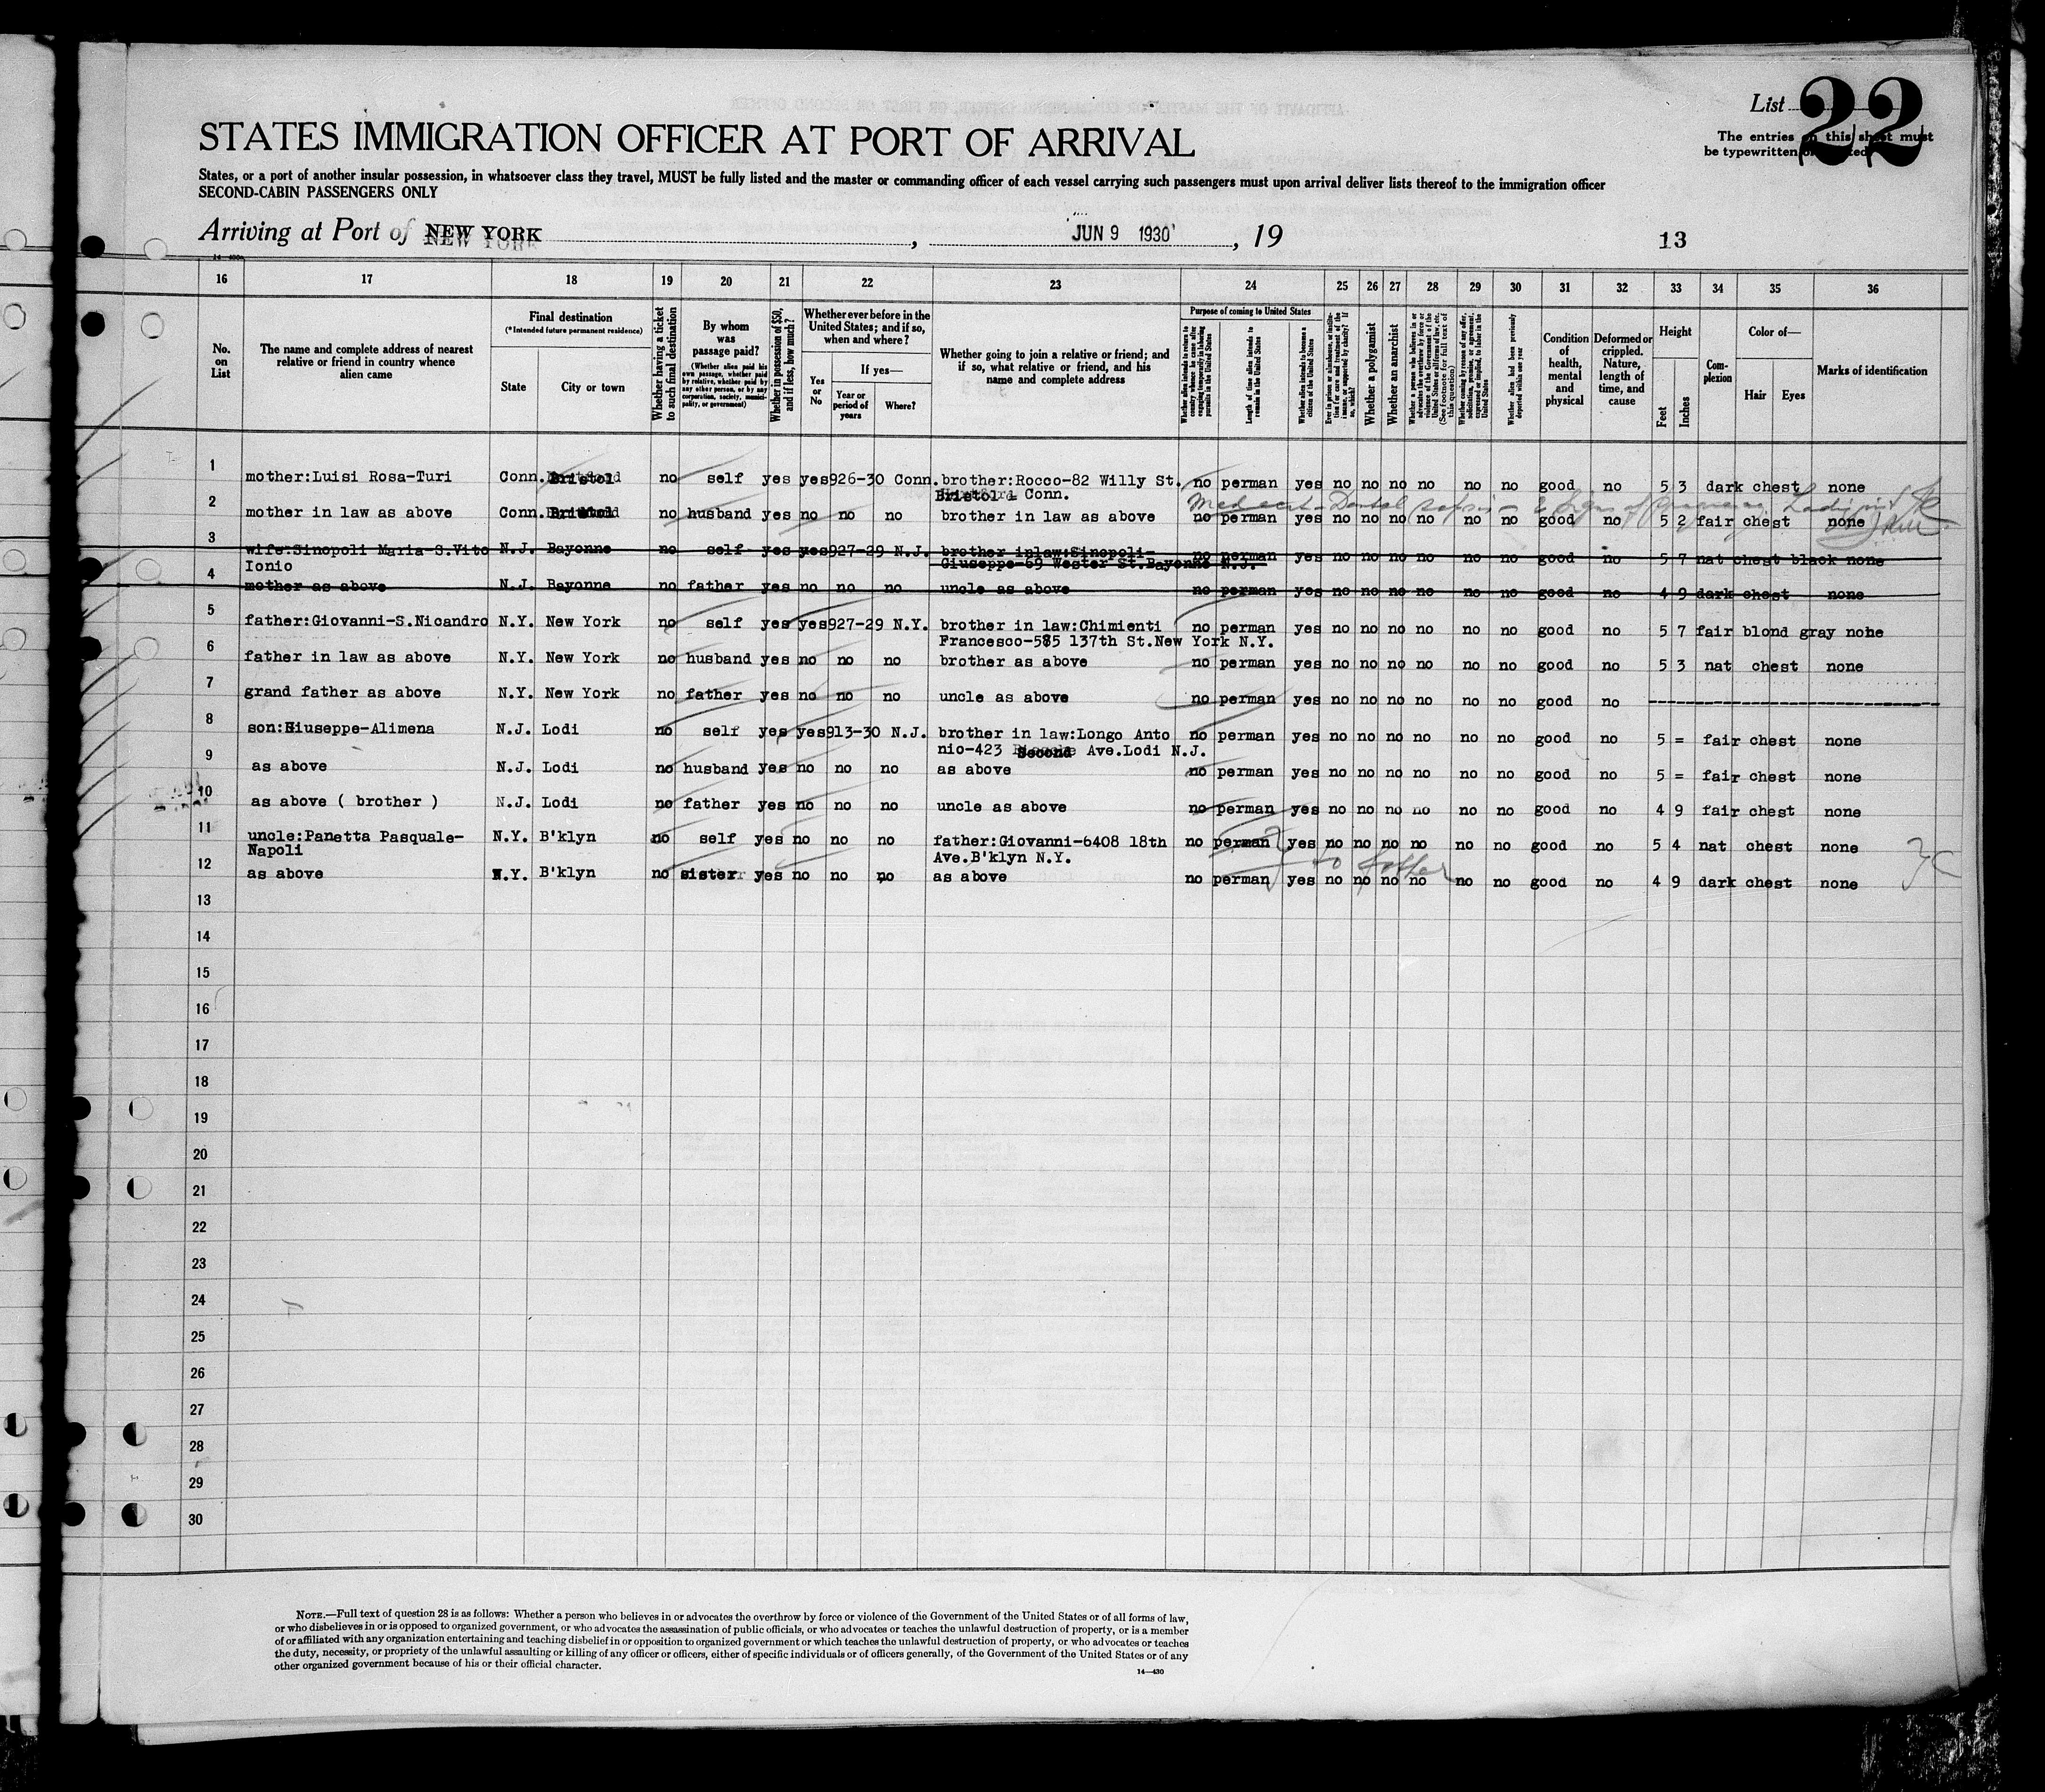 List 22
The entries on this sheet must
be typewritten or
STATES IMMIGRATION OFFICER AT PORT OF ARRIVAL
States, or a port of another insular possession, in whatsoever class they travel, MUST be fully listed and the master or commanding officer of each vessel carrying such passengers must upon arrival deliver lists thereof to the immigration officer
SECOND-CABIN PASSENGERS ONLY
Arriving at Port of NEW YORK, JUN 9 1930, 19
13
16 17 18 19 20 21 22 23 24 25 26 27 28 29 30 31 32 33 34 35 36
No. on List
The name and complete address of nearest relative or friend in country whence alien came
Final destination
(*Intended future permanent residence)
State
City or town
Whether having a ticket to such final destination
By whom was passage paid?
(Whether alien paid his own passage, whether paid by relative, whether paid by any other person, or by any corporation, society, municipality, or government)
Whether in possession of $50, and if less, how much?
Whether ever before in the United States; and if so, when and where?
Yes or No
If yes—
Year or period of years
Where?
Whether going to join a relative or friend; and if so, what relative or friend, and his name and complete address
Purpose of coming to United States
Whether alien intends to return to country whence he came after engaging temporarily in laboring pursuits in the United States
Length of time alien intends to remain in the United States
Whether alien intends to become a citizen of the United States
Whether a polygamist
Whether an anarchist
Whether alien had been previously deported within one year
Condition of health, mental and physical
Deformed or crippled. Nature, length of time, and cause
Height
Feet
Inches
Complexion
Color of—
Hair
Eyes
Marks of identification
1 mother:Luisi Rosa-Turi Conn. Bristol no self yes yes 926-30 Conn. brother:Rocco-82 Willy St. no perman yes no no no no no no good no 5 3 dark chest none
Bristol Conn.
2 mother in law as above Conn. Bristol no husband yes no no no brother in law as above no perman yes no no no no no no good no 5 2 fair chest none
3 wife:Sinopoli Maria-S.Vito N.J. Bayonne no self yes yes 927-29 N.J. brother inlaw:Sinopoli- no perman yes no no no no no no good no 5 7 nat chest black none
Ionio Giuseppe-69 Wester St.Bayonne N.J.
4 mother as above N.J. Bayonne no father yes no no no uncle as above no perman yes no no no no no no good no 4 9 dark chest none
5 father:Giovanni-S.Nicandro N.Y. New York no self yes yes 927-29 N.Y. brother in law:Chimienti no perman yes no no no no no no good no 5 7 fair blond gray none
Francesco-585 137th St.New York N.Y.
6 father in law as above N.Y. New York no husband yes no no no brother as above no perman yes no no no no no no good no 5 3 nat chest none
7 grand father as above N.Y. New York no father yes no no no uncle as above no perman yes no no no no no no good no
8 son:Giuseppe-Alimena N.J. Lodi no self yes yes 913-30 N.J. brother in law:Longo Anto no perman yes no no no no no no good no 5 = fair chest none
nio-423 Second Ave.Lodi N.J.
9 as above N.J. Lodi no husband yes no no no as above no perman yes no no no no no no good no 5 = fair chest none
10 as above ( brother ) N.J. Lodi no father yes no no no uncle as above no perman yes no no no no no no good no 4 9 fair chest none
11 uncle:Panetta Pasquale- N.Y. B'klyn no self yes no no no father:Giovanni-6408 18th no perman yes no no no no no no good no 5 4 nat chest none
Napoli Ave.B'klyn N.Y.
to father
12 as above N.Y. B'klyn no sister yes no no no as above no perman yes no no no no no no good no 4 9 dark chest none
13
14
15
16
17
18
19
20
21
22
23
24
25
26
27
28
29
30
NOTE.—Full text of question 28 is as follows: Whether a person who believes in or advocates the overthrow by force or violence of the Government of the United States or of all forms of law,
or who disbelieves in or is opposed to organized government, or who advocates the assassination of public officials, or who advocates or teaches the unlawful destruction of property, or is a member
of or affiliated with any organization entertaining and teaching disbelief in or opposition to organized government or which teaches the unlawful destruction of property, or who advocates or teaches
the duty, necessity, or propriety of the unlawful assaulting or killing of any officer or officers, either of specific individuals or of officers generally, of the Government of the United States or of any
other organized government because of his or their official character.
14—430